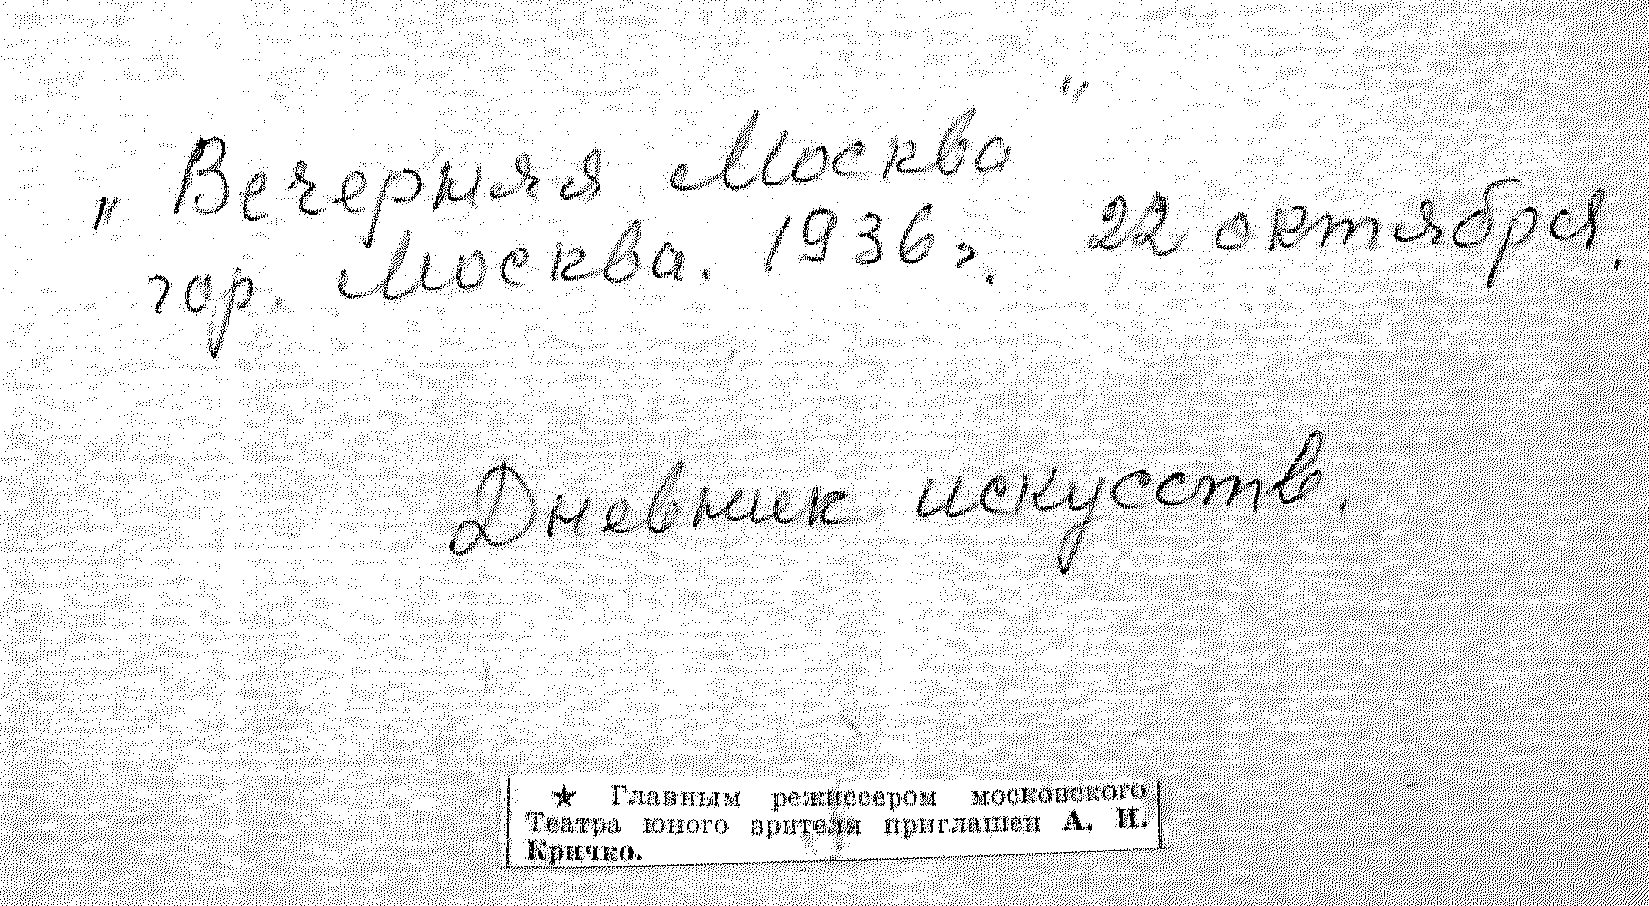 „Вечерняя Москва"
гор. Москва. 1936 г. 22 октября.
Дневник искусств.
★ Главным режиссером московского
Театра юного зрителя приглашен А. И.
Кричко.